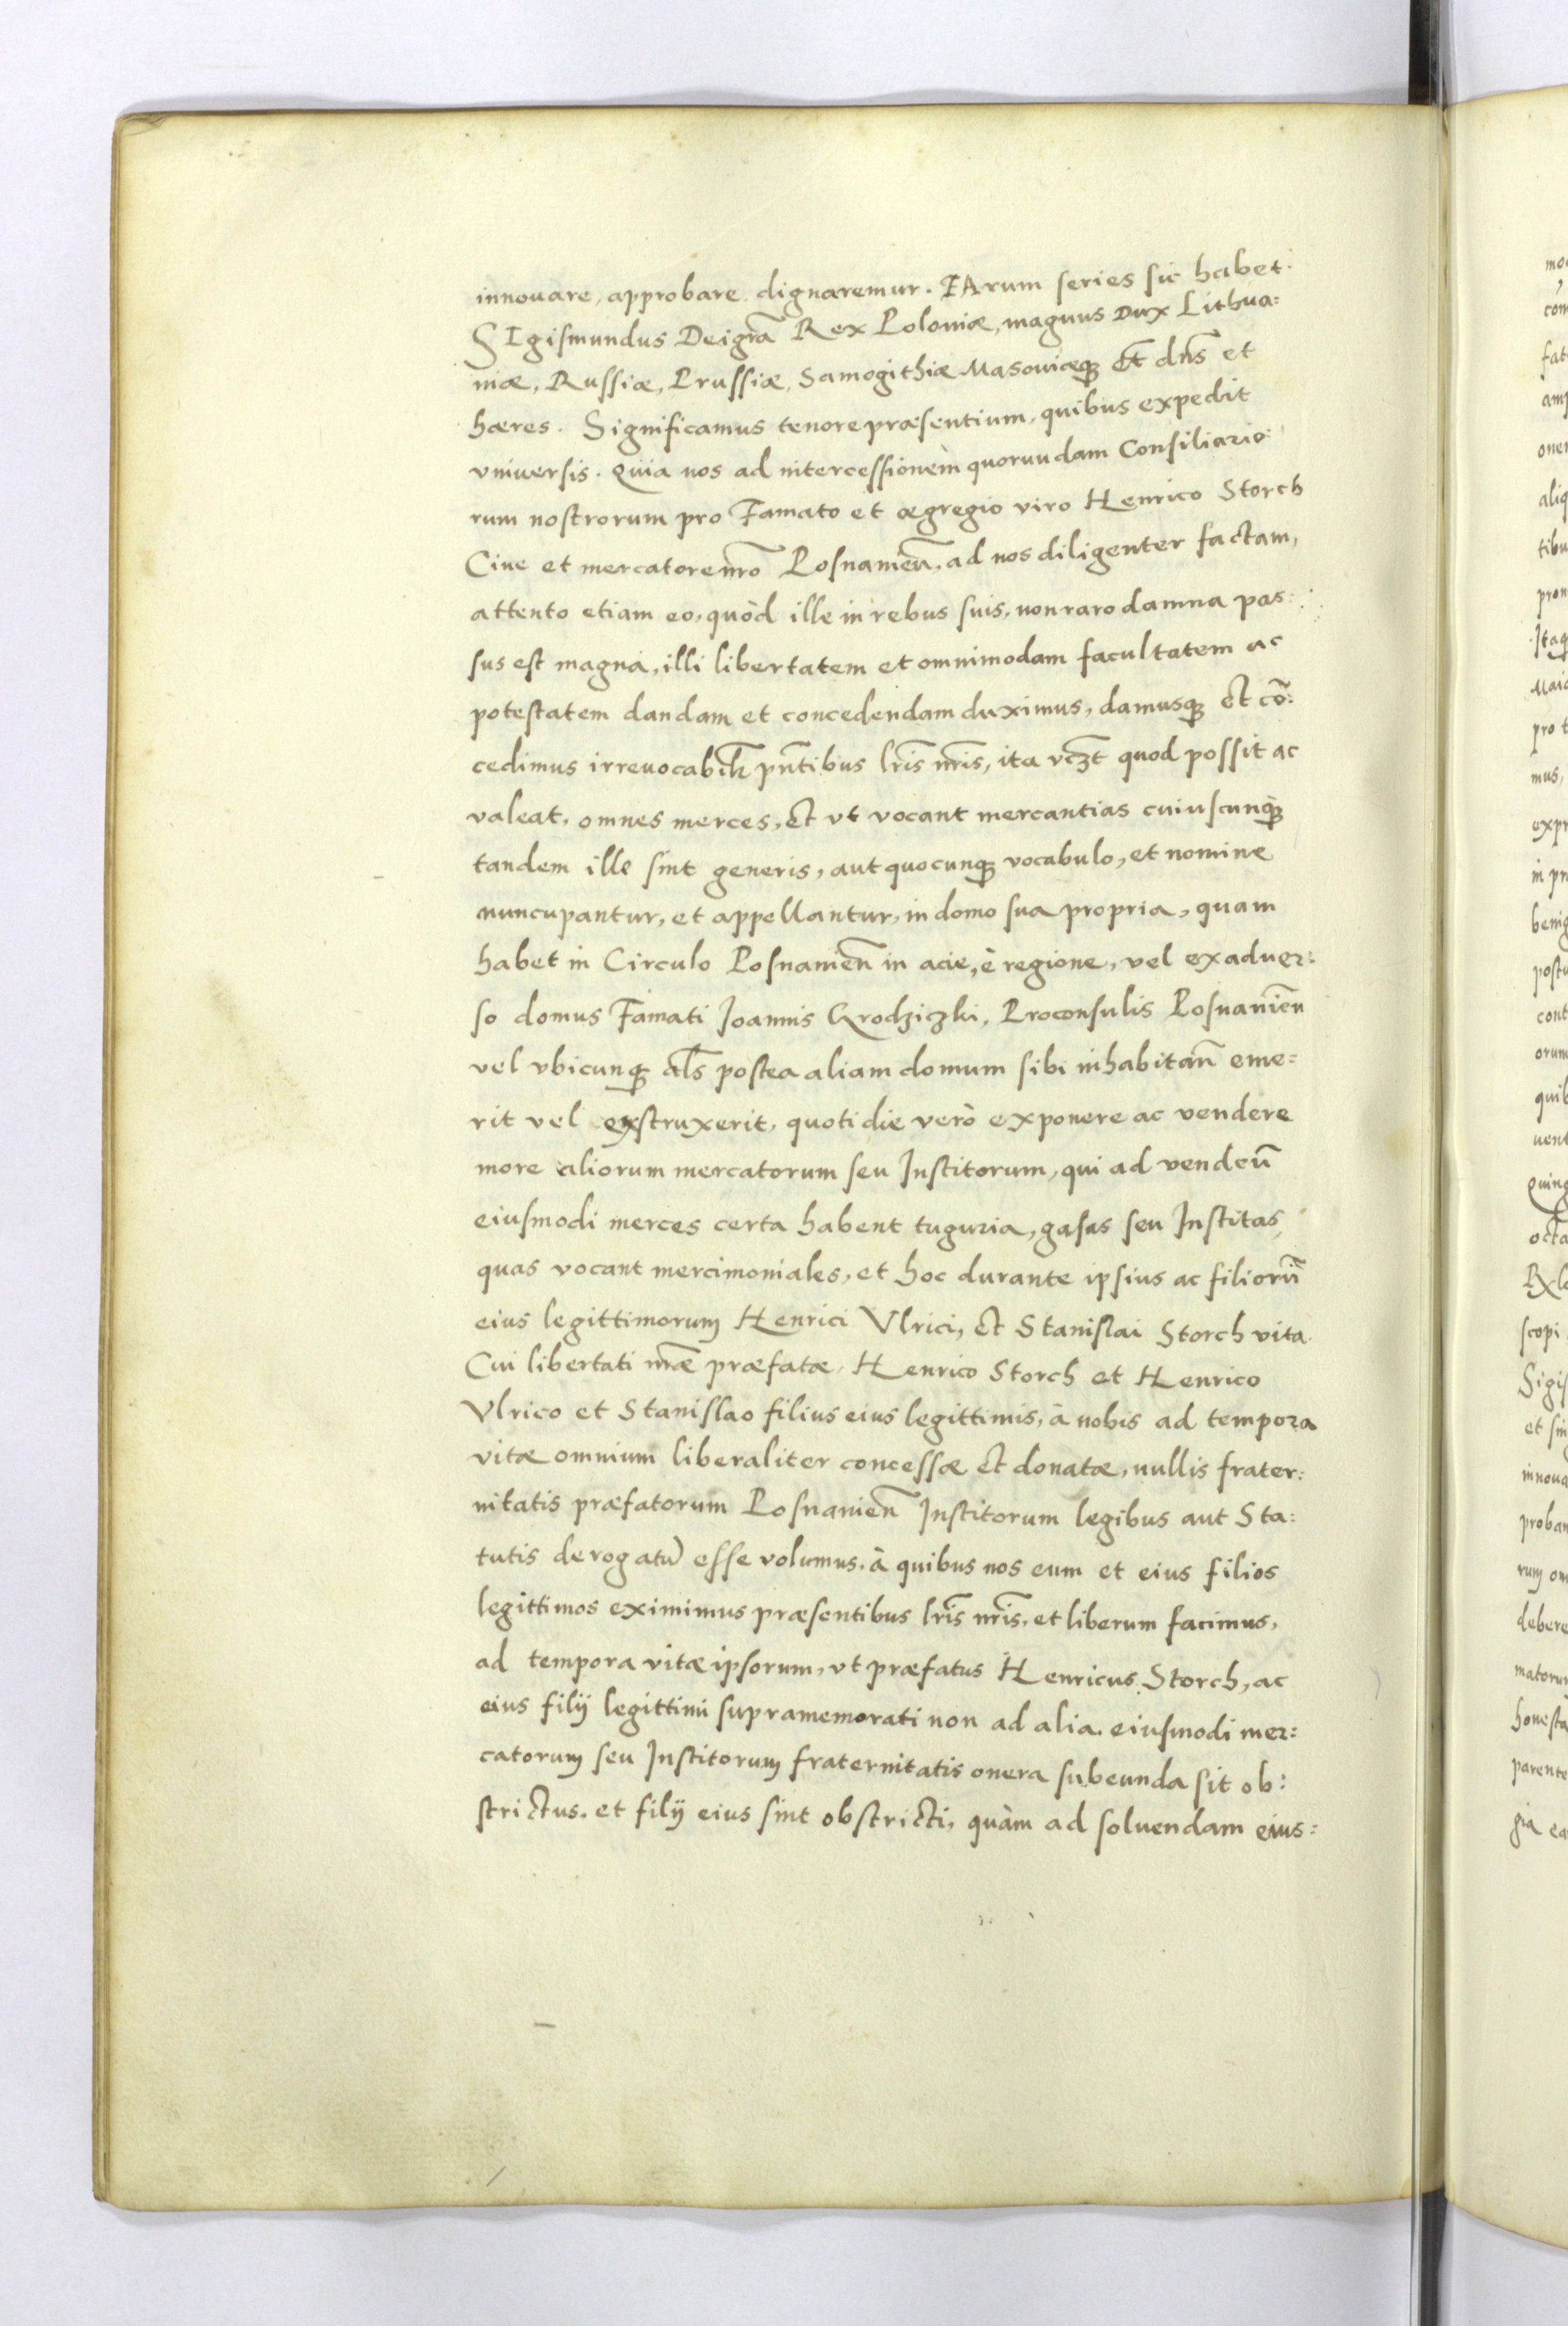 innouare, approbare dignaremur. EArum series sic habet.
SIgismundus Dei grã Rex Poloniæ, magnus Dux Lithua:
niæ, Russiæ, Prussiæ, Samogithiæ Masouiæq; &c̃ dñs et
hæres. Significamus tenore præsentium, quibus expedit
vniuersis. Quia nos ad intercessionem quorundam Consiliario:
rum nostrorum pro Famato et ægregio viro Henrico Storch
Ciue et mercatore nrõ Posnanieñ, ad nos diligenter factam,
attento etiam eo, quòd ille in rebus suis, non raro damna pas:
sus est magna, illi libertatem et omnimodam facultatem ac
potestatem dandam et concedendam duximus, damusq; et cõ:
cedimus irreuocabilr̃ pñtibus lrĩs nrĩs, ita vcz̃t quod possit ac
valeat, omnes merces, et vt vocant mercantias cuiuscunq;
tandem ille sint generis, aut quocunq; vocabulo, et nomine
nuncupantur, et appellantur, in domo sua propria, quam
habet in Circulo Posnanieñ in acie, è regione, vel ex aduer:
so domus Famati Joannis Grodziczki, Proconsulis Posnanieñ
vel vbicunq; als̃ postea aliam domum sibi inhabitañ eme:
rit vel exstruxerit, quotidie verò exponere ac vendere
more aliorum mercatorum seu Institorum, qui ad vendeñ
eiusmodi merces certa habent tuguria, gasas seu Institas,
quas vocant mercimoniales, et hoc durante ipsius ac filiorũ
eius legittimorum Henrici Vlrici, et Stanislai Storch vita.
Cui libertati nræ̃ præfatæ, Henrico Storch et Henrico
Vlrico et Stanislao filius eius legittimis, à nobis ad tempora
vitæ omnium liberaliter concessæ et donatæ, nullis frater:
nitatis præfatorum Posnanieñ Institorum legibus aut Sta:
tutis derogatũ esse volumus, à quibus nos eum et eius filios
legittimos eximimus præsentibus lrĩs nrĩs, et liberum facimus,
ad tempora vitæ ipsorum, vt præfatus Henricus Storch, ac
eius filij legittimi supramemorati non ad alia eiusmodi mer:
catorum seu Institorum fraternitatis onera subeunda sit ob:
strictus, et filij eius sint obstricti, quàm ad soluendam eius: